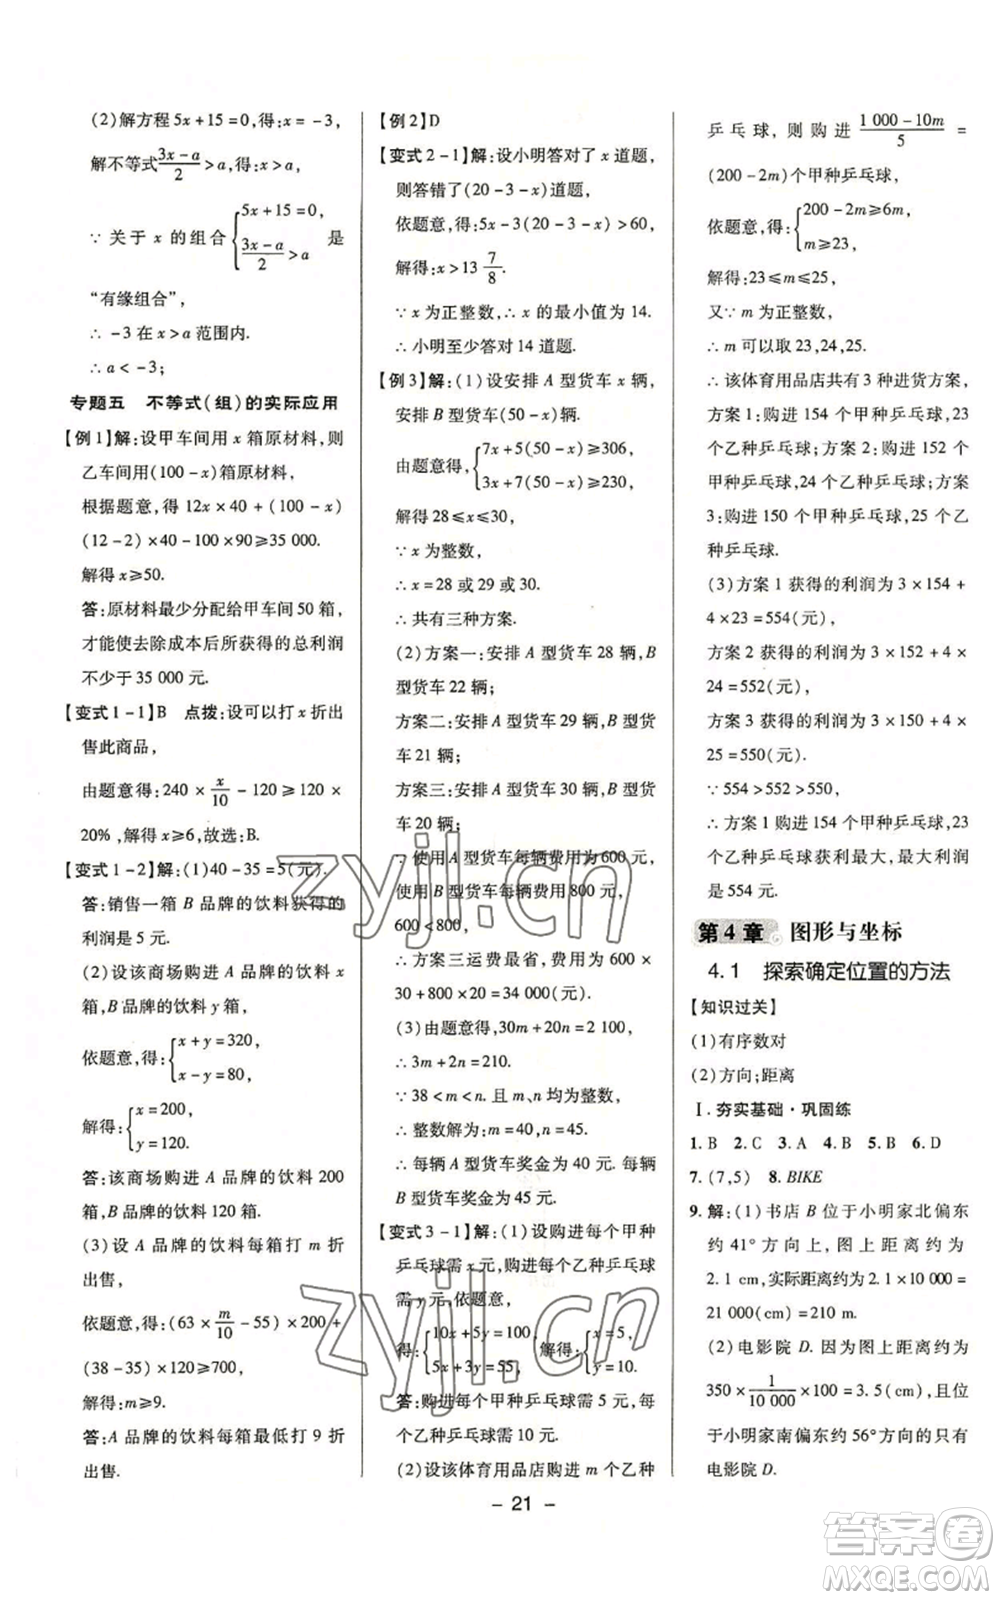 (2)解方程5x+15=0,得:x=-3,
解不等式(3x-a)/2>a,得:x>a,
∵ 关于 x 的组合{5x+15=0, (3x-a)/2>a 是
“有缘组合”,
∴ -3在 x>a 范围内.
∴ a<-3;
专题五 不等式(组)的实际应用
【例1】解:设甲车间用 x 箱原材料,则
乙车间用(100-x)箱原材料,
根据题意,得 12x×40+(100-x)
(12-2)×40-100×90≥35 000.
解得 x≥50.
答:原材料最少分配给甲车间 50 箱,
才能使去除成本后所获得的总利润
不少于 35 000 元.
【变式1-1】B 点拨:设可以打 x 折出
售此商品,
由题意得:240×x/10-120≥120×
20%,解得 x≥6,故选:B.
【变式1-2】解:(1)40-35=5(元).
答:销售一箱 B 品牌的饮料获得的
利润是 5 元.
(2)设该商场购进 A 品牌的饮料 x
箱,B 品牌的饮料 y 箱,
依题意,得:{x+y=320, x-y=80,
解得:{x=200, y=120.
答:该商场购进 A 品牌的饮料 200
箱,B 品牌的饮料 120 箱.
(3)设 A 品牌的饮料每箱打 m 折
出售,
依题意,得:(63×m/10-55)×200+
(38-35)×120≥700,
解得:m≥9.
答:A 品牌的饮料每箱最低打 9 折
出售.
【例2】D
【变式2-1】解:设小明答对了 x 道题,
则答错了(20-3-x)道题,
依题意,得:5x-3(20-3-x)>60,
解得:x>13 7/8.
∵ x 为正整数,∴ x 的最小值为 14.
∴ 小明至少答对 14 道题.
【例3】解:(1)设安排 A 型货车 x 辆,
安排 B 型货车(50-x)辆.
由题意得,{7x+5(50-x)≥306, 3x+7(50-x)≥230,
解得 28≤x≤30.
∵ x 为整数,
∴ x=28 或 29 或 30.
∴ 共有三种方案.
(2)方案一:安排 A 型货车 28 辆,B
型货车 22 辆;
方案二:安排 A 型货车 29 辆,B 型货
车 21 辆;
方案三:安排 A 型货车 30 辆,B 型货
车 20 辆;
∵ 使用 A 型货车每辆费用为 600 元,
使用 B 型货车每辆费用 800 元,
600<800,
∴ 方案三运费最省,费用为 600×
30+20×800=34 000(元).
(3)由题意得,30m+20n=2 100.
∴ 3m+2n=210.
∵ 38<m<n. 且 m,n 均为整数.
∴ 整数解为:m=40,n=45.
∴ 每辆 A 型货车奖金为 40 元,每辆
B 型货车奖金为 45 元.
【变式3-1】解:(1)设购进每个甲种
乒乓球需 x 元,购进每个乙种乒乓球
需 y 元,依题意,
得:{10x+5y=100, 5x+3y=55, 解得:{x=5, y=10.
答:购进每个甲种乒乓球需 5 元,每
个乙种乒乓球需 10 元.
(2)设该体育用品店购进 m 个乙种
乒乓球,则购进(1 000-10m)/5=
(200-2m)个甲种乒乓球,
依题意,得:{200-2m≥6m, m≥23,
解得:23≤m≤25,
又∵ m 为正整数,
∴ m 可以取 23,24,25.
∴ 该体育用品店共有三种进货方案,
方案 1:购进 154 个甲种乒乓球,23
个乙种乒乓球;方案 2:购进 152 个甲
种乒乓球,24 个乙种乒乓球;方案
3:购进 150 个甲种乒乓球,25 个乙
种乒乓球.
(3)方案 1 获得的利润为 3×154+
4×23=554(元),
方案 2 获得的利润为 3×152+4×
24=552(元),
方案 3 获得的利润为 3×150+4×
25=550(元).
∵ 554>552>550,
∴ 方案 1 购进 154 个甲种乒乓球,23
个乙种乒乓球获利最大,最大利润
是 554 元.
第4章 图形与坐标
4.1 探索确定位置的方法
【知识过关】
(1)有序数对
(2)方向;距离
Ⅰ.夯实基础·巩固练
1.B 2.C 3.A 4.B 5.B 6.D
7.(7,5) 8.BIKE
9.解:(1)书店 B 位于小明家北偏东
约 41°方向上,图上距离约为
2.1 cm,实际距离约为 2.1×10 000=
21 000(cm)=210 m.
(2)电影院 D. 因为图上距离约为
350×1/10 000×100=3.5(cm),且位
于小明家南偏东约56°方向的只有
电影院 D.
- 21 -
zyjl.cn
zyjl.cn
答案圈
MXQE.COM